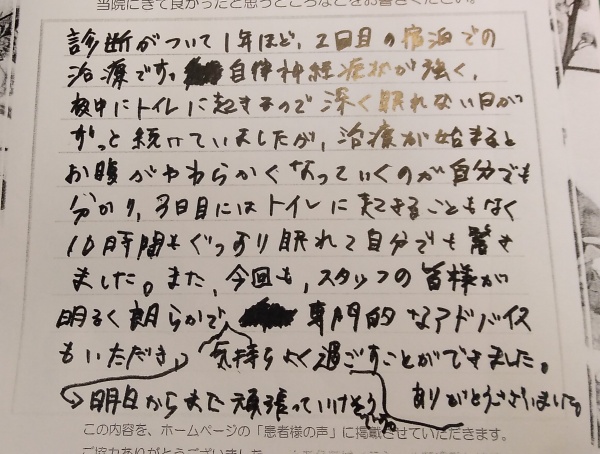 当院にきて良かったと思うところなどをお書きください。
診断がついて1年ほど、2回目の宿泊での
治療です。自律神経症状が強く、
夜中にトイレに起きるので深く眠れない日が
ずっと続いていましたが、治療が始まると
お腹がやわらかくなっていくのが自分でも
分かり、3日目にはトイレに起きることもなく
10時間もぐっすり眠れて自分でも驚き
ました。また、今回も、スタッフの皆様が
明るく朗らかで、専門的なアドバイス
もいただき、気持ちよく過ごすことができました。
明日からまた頑張っていけそうです。ありがとうございました。
この内容を、ホームページの「患者様の声」に掲載させていただきます。
ご協力ありがとうございました